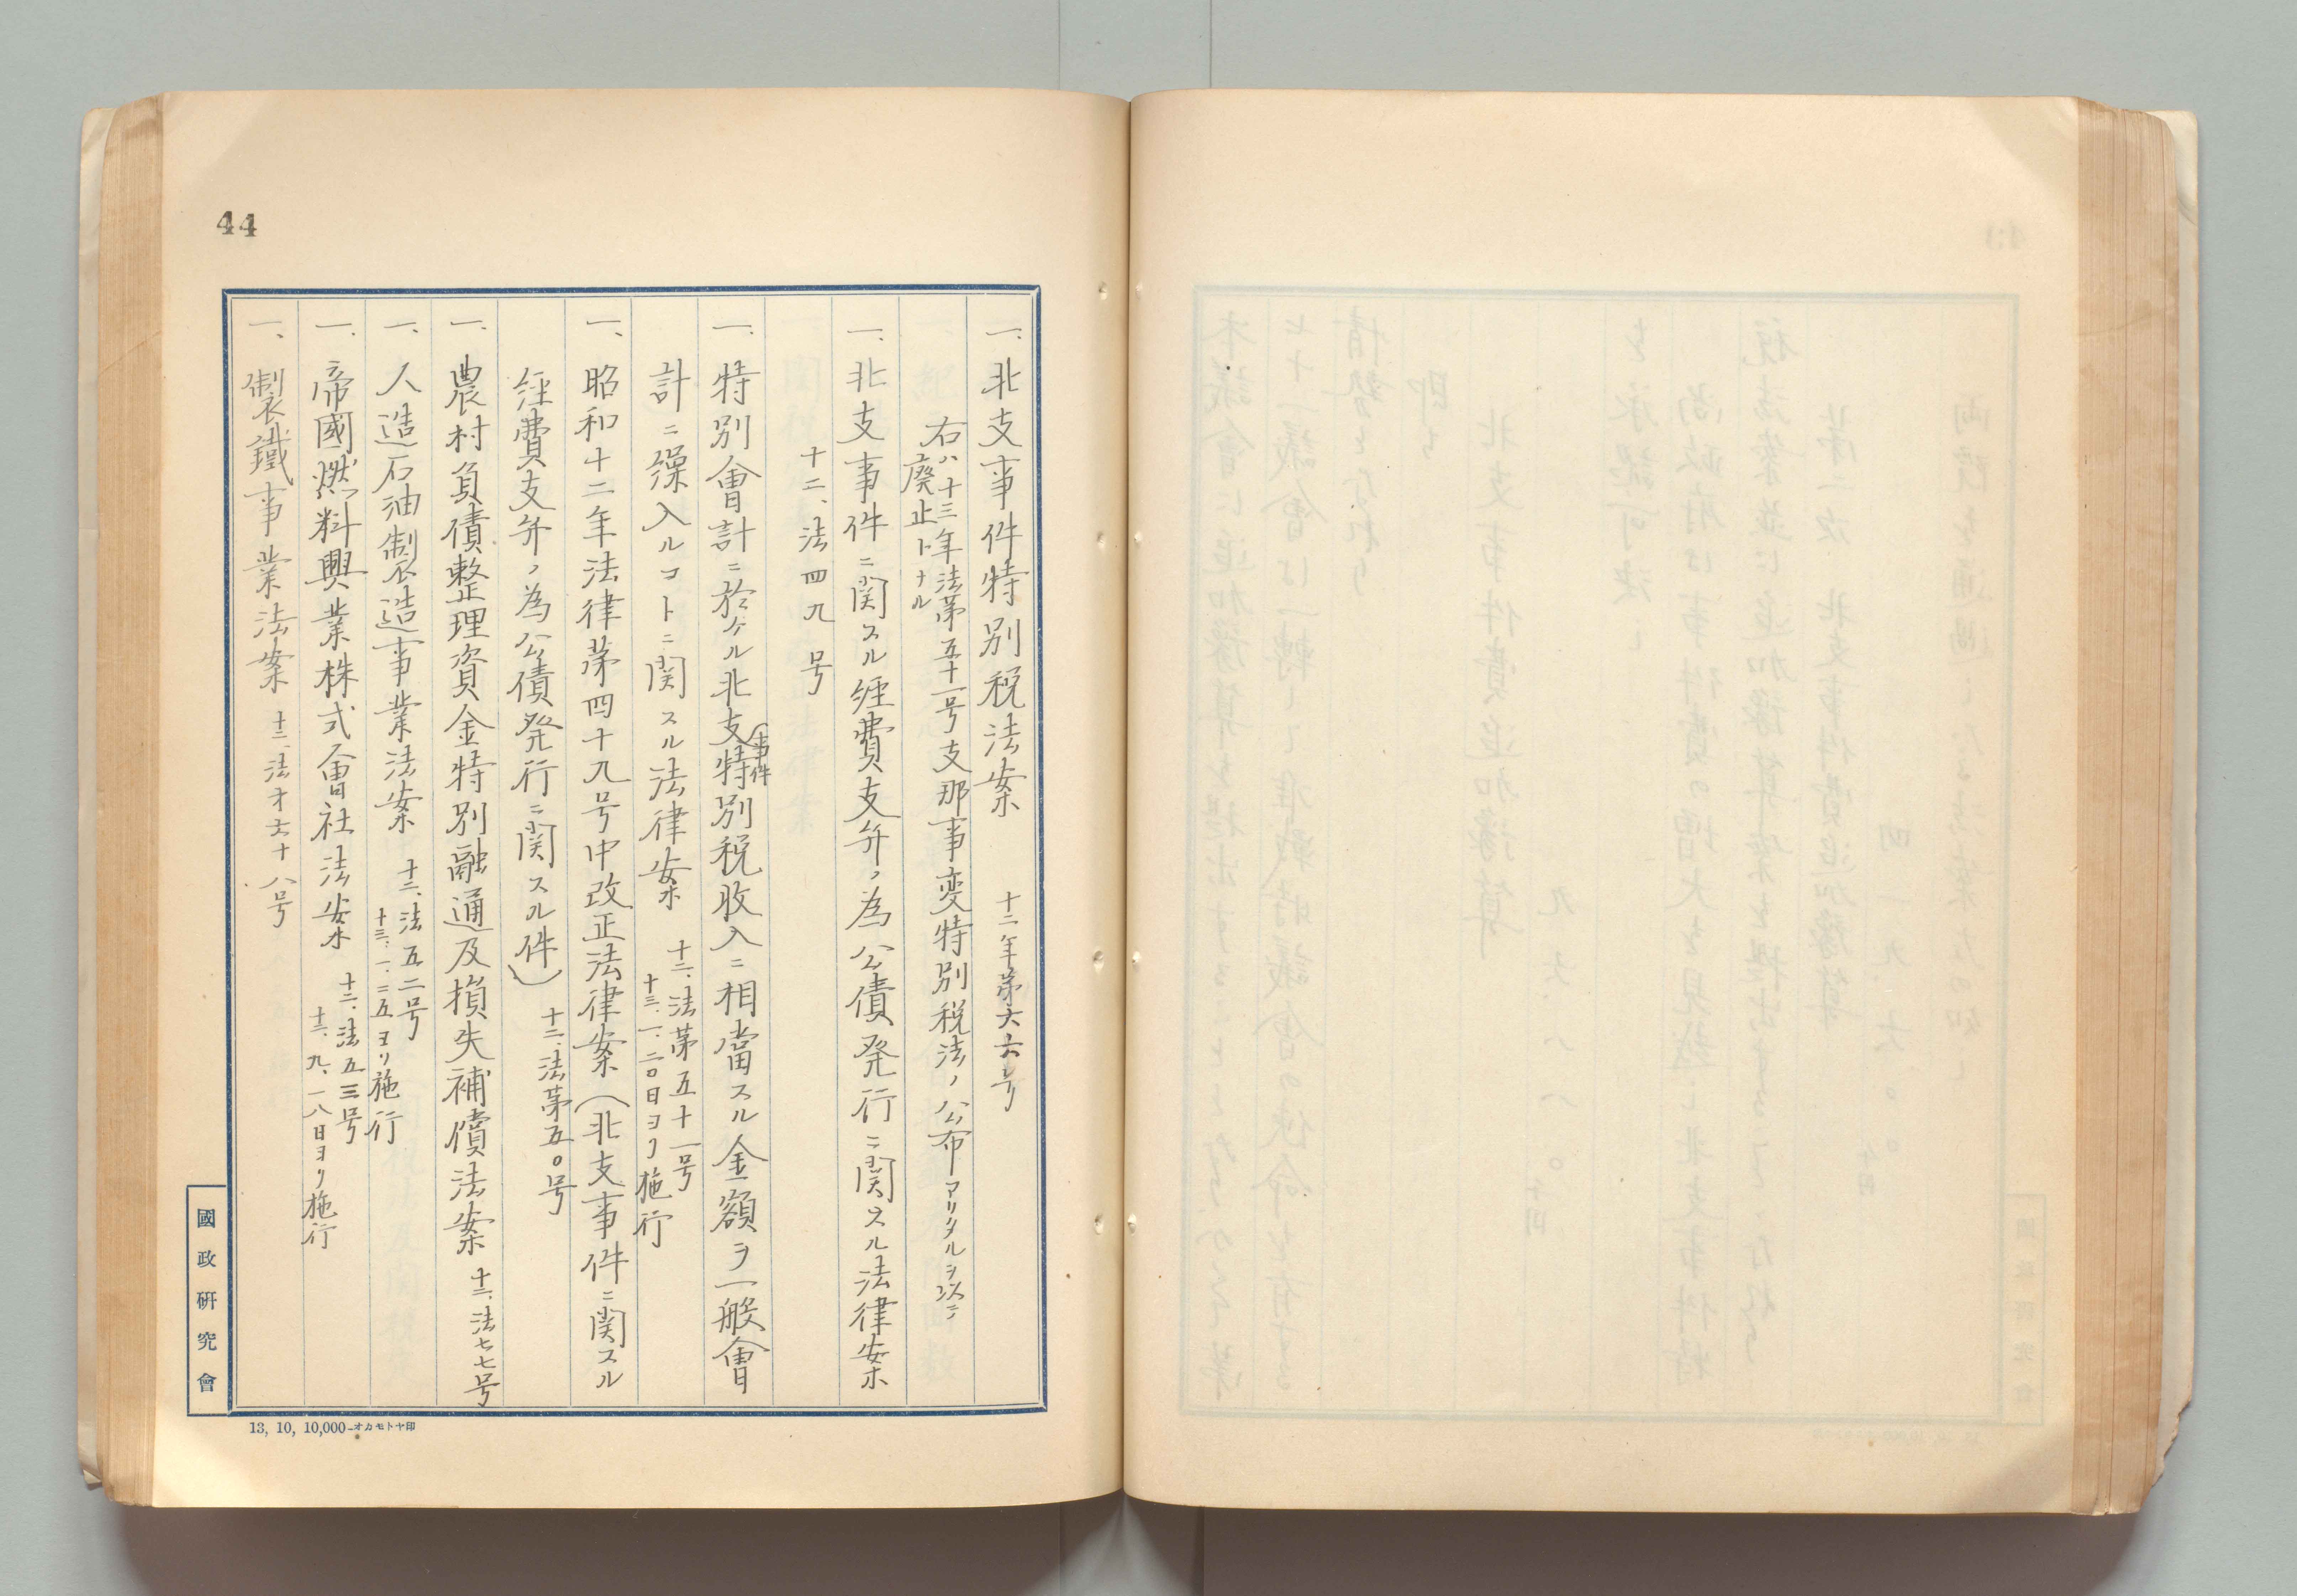 44
一、北支事件特別税法案 十二年第六六号
右ハ十三年法第五十一号支那事変特別税法ノ公布アリタルヲ以テ
廃止トナル
一、北支事件ニ関スル経費支弁ノ為公債発行ニ関スル法律案
十二、法四九号
一、特別會計ニ於ケル北支事件特別税收入ニ相當スル金額ヲ一般會
計ニ繰入ルコトニ関スル法律案 十二、法第五十一号
十三、一、二〇日ヨリ施行
一、昭和十二年法律第四十九号中改正法律案(北支事件ニ関スル
経費支弁ノ為公債発行ニ関スル件) 十二、法第五〇号
一、農村負債整理資金特別融通及損失補償法案 十二、法七七号
一、人造石油製造事業法案 十二、法五二号
十三、一、二五ヨリ施行
一、帝國燃料興業株式會社法案 十二、法五三号
十二、九、一八日ヨリ施行
一、製鐵事業法案 十二、法オ六十八号
國政研究會
13, 10, 10,000–オカモトヤ印